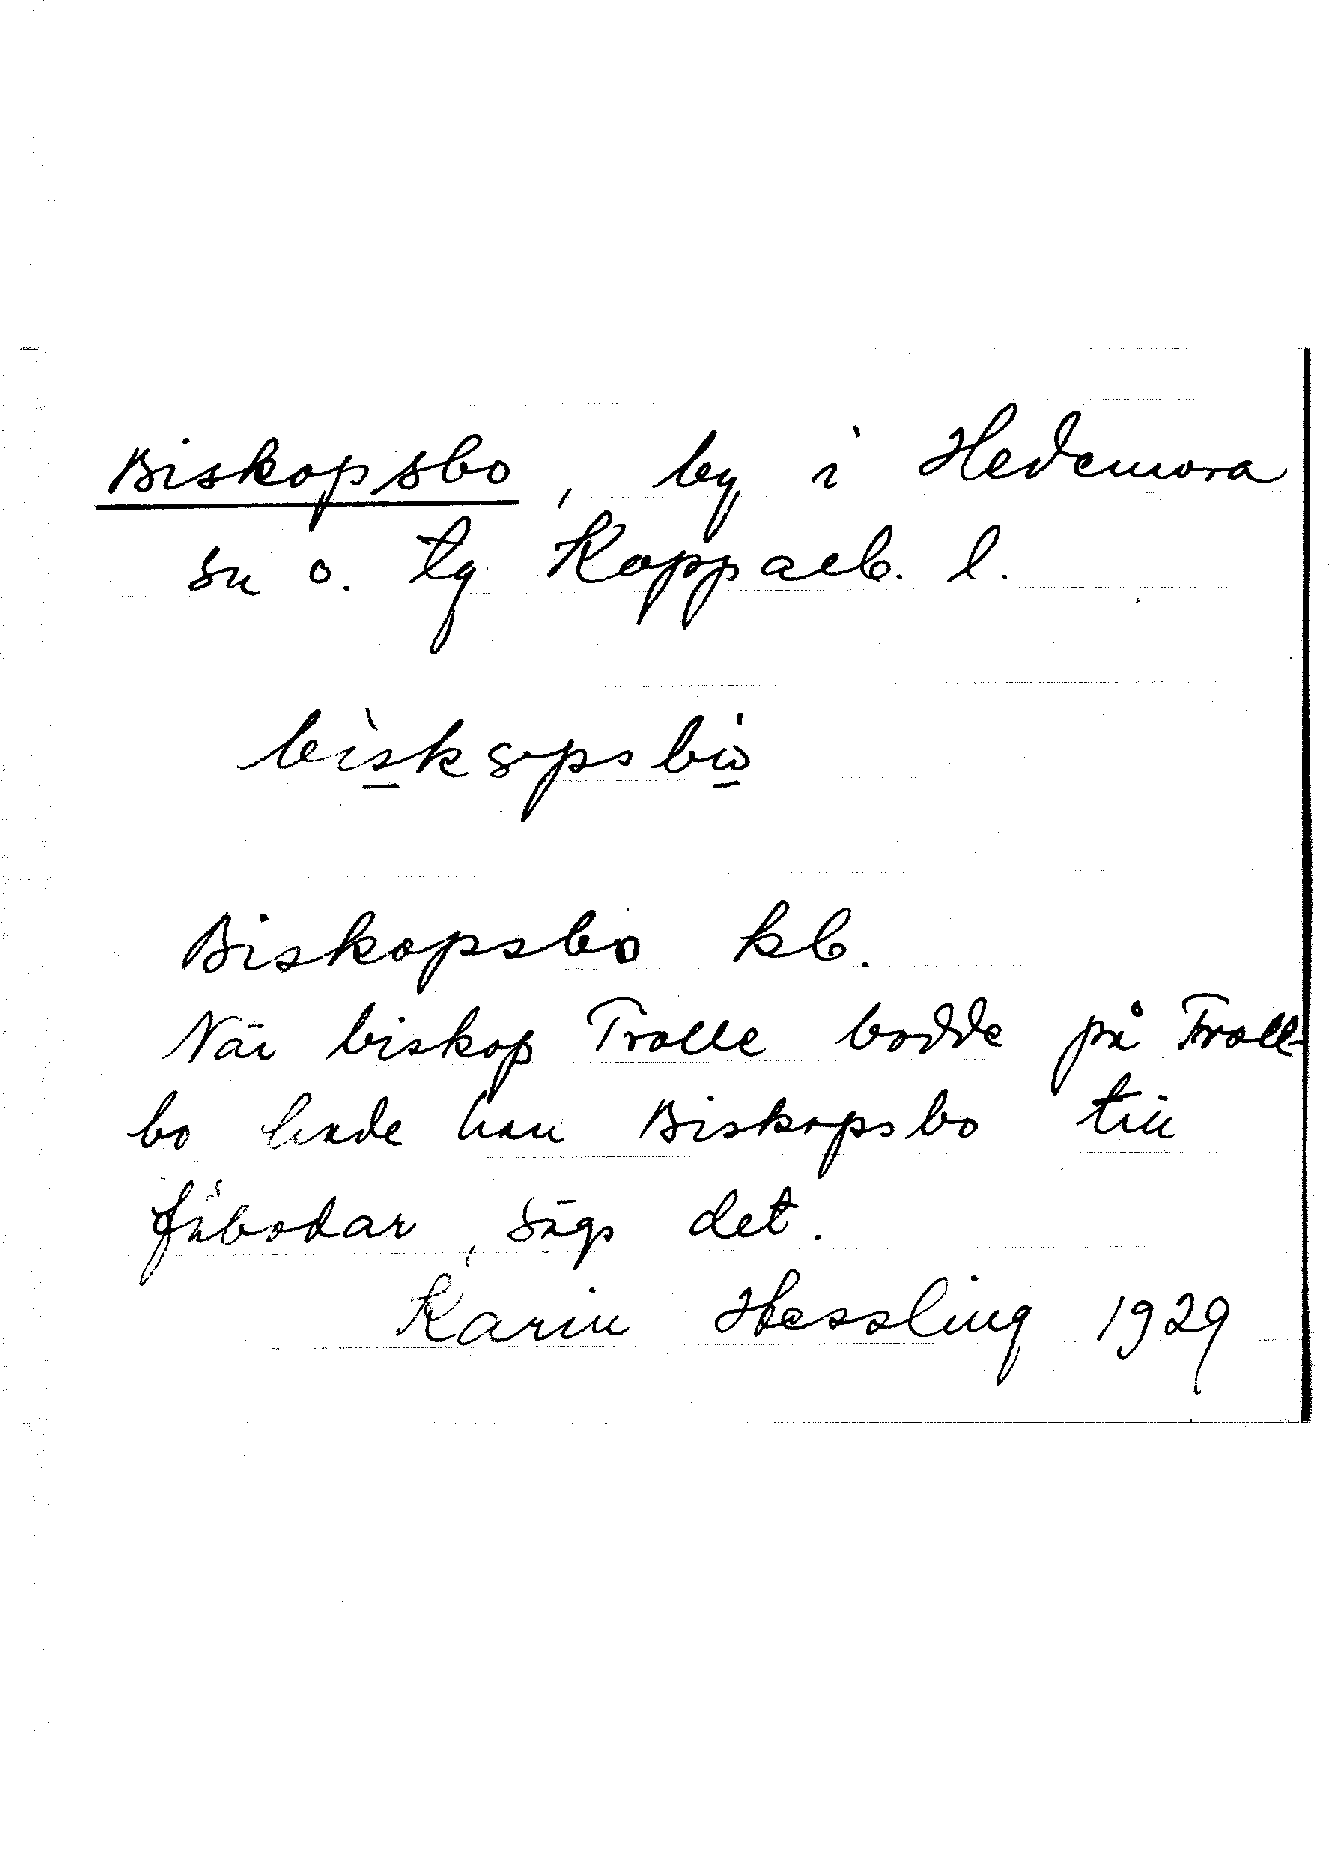 Biskopsbo, by i Hedemora
sn o. tg Kopparb. l.
Biskopsbo kb.
När biskop Trolle bodde på Troll-
bo hade han Biskopsbo till
fäbodar, sägs det.
Karin Hessling 1929